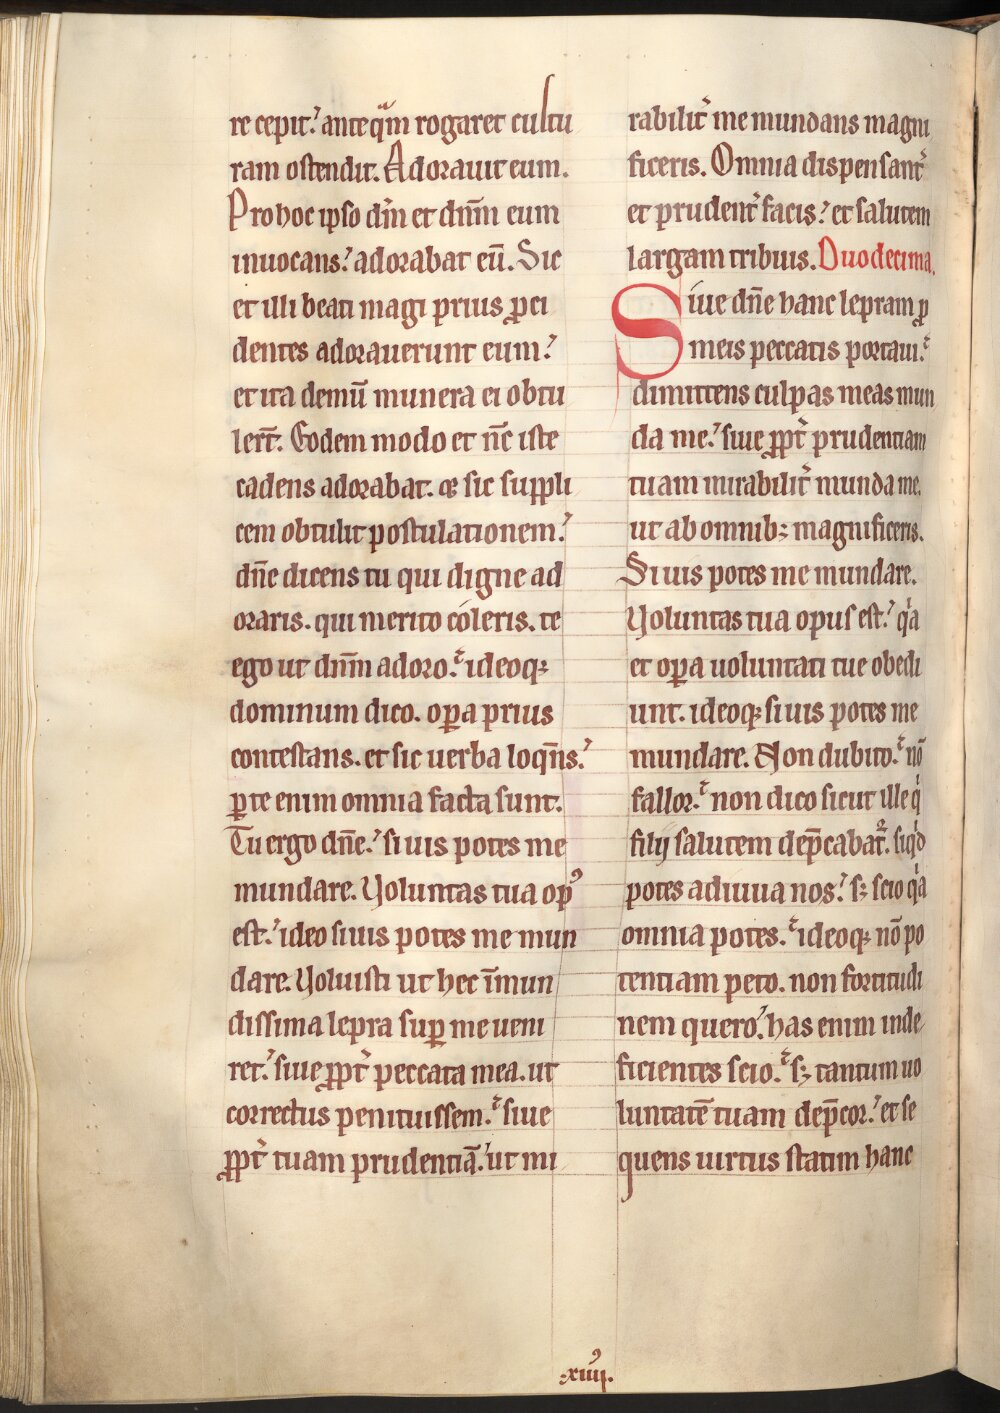 re cepit. anteq̃m rogaret cultu
ram ostendit. Adorauit eum.
Pro hoc ipso dñm et dñm eum
inuocans. adorabat eũ. Sic
et illi beati magi prius ꝓci
dentes adorauerunt eum.
et ita demũ munera ei obtu
lert̃. Eodem modo et nc̃ iste
cadens adorabat. & sic suppli
cem obtulit postulationem.
dñe dicens tu qui digne ad
oraris. qui merito coleris. te
ego ut dñm adoro. ideoq;
dominum dico. oꝑa prius
contestans. et sic uerba loqñs.
ꝑ te enim omnia facta sunt.
Tu ergo dñe. si uis potes me
mundare. Voluntas tua opꝰ
est. ideo si uis potes me mun
dare. Voluisti ut hec ĩmun
dissima lepra suꝑ me ueni
ret. siue ꝓpt̃ peccata mea. ut
correctus penituissem. siue
ꝓpt̃ tuam prudentiã. ut mi
rabilit̃ me mundans magni
ficeris. Omnia dispensant̃
et prudent̃ facis. et salutem
largam tribuis. Duodecima.
Siue dñe hanc lepram ꝓ
meis peccatis portaui.
dimittens culpas meas mun
da me. siue ꝓpt̃ prudentiam
tuam mirabilit̃ munda me.
ut ab omnib; magnificeris.
Si uis potes me mundare.
Voluntas tua opus est. qͥa
et oꝑa uoluntati tue obedi
unt. ideoq; si uis potes me
mundare. Non dubito. nõ
fallor. non dico sicut ille qͥ
filij salutem dep̃cabat᷑. siqͥd
potes adiuua nos. s; scio qͥa
omnia potes. ideoq; nõ po
tentiam peto. non fortitudi
nem quero. has enim inde
ficientes scio. s; tantum uo
luntatẽ tuam dep̃cor. et se
quens uirtus statim hanc
.xiiijꝰ.